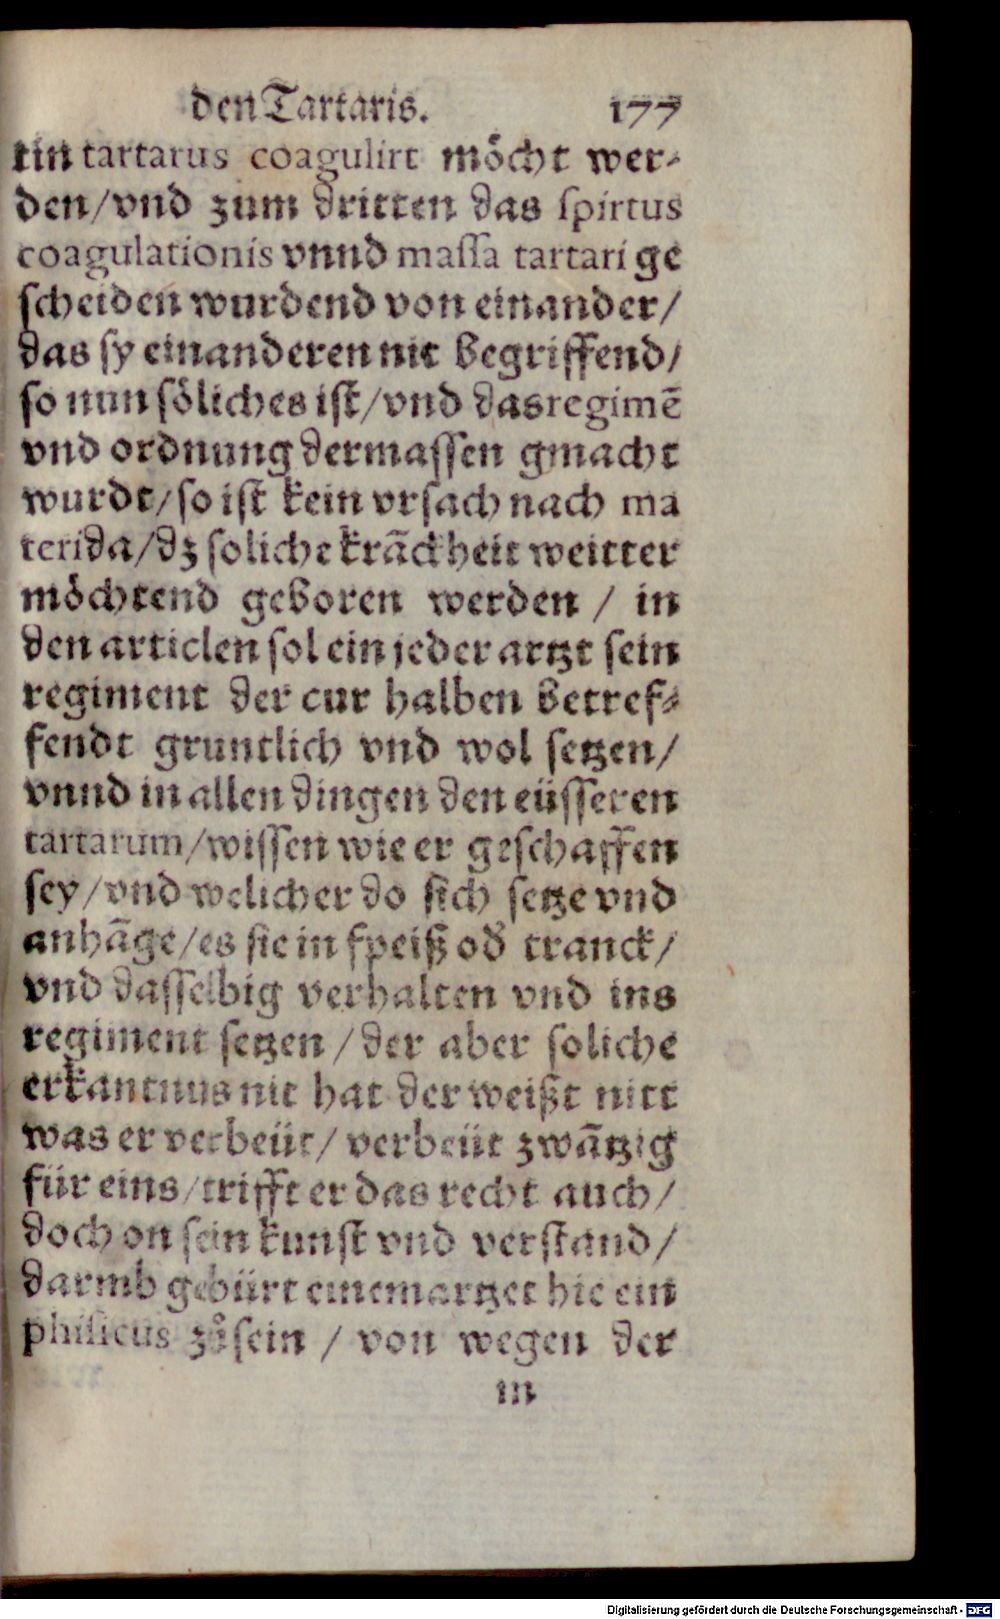 den Tartaris. 177
tin tartarus coagulirt möcht wer⸗
den/vnd zum dritten das spirtus
coagulationis vnnd massa tartari ge
scheiden wurdend von einander/
das sy einanderen nit begriffend/
so nun söliches ist/vnd das regimē
vnd ordnung dermassen gmacht
wurdt/so ist kein vrsach nach ma
terida/dz soliche krāckheit weitter
möchtend geboren werden / in
den articlen sol ein jeder artzt sein
regiment der cur halben betref⸗
fendt gruntlich vnd wol setzen/
vnnd in allen dingen den eüsseren
tartarum/wissen wie er geschaffen
sey/vnd welicher do sich setze vnd
anhāge/es sie in speiß od̕ tranck/
vnd dasselbig verhalten vnd ins
regiment setzen / der aber soliche
erkantnus nit hat der weißt nitt
was er verbeüt/ verbeüt zwātzig
für eins/trifft er das recht auch/
doch on sein kunst vnd verstand/
darmb gebürt einem artzet hie ein
phisicus zůsein / von wegen der
m
Digitalisierung gefördert durch die Deutsche Forschungsgemeinschaft - DFG